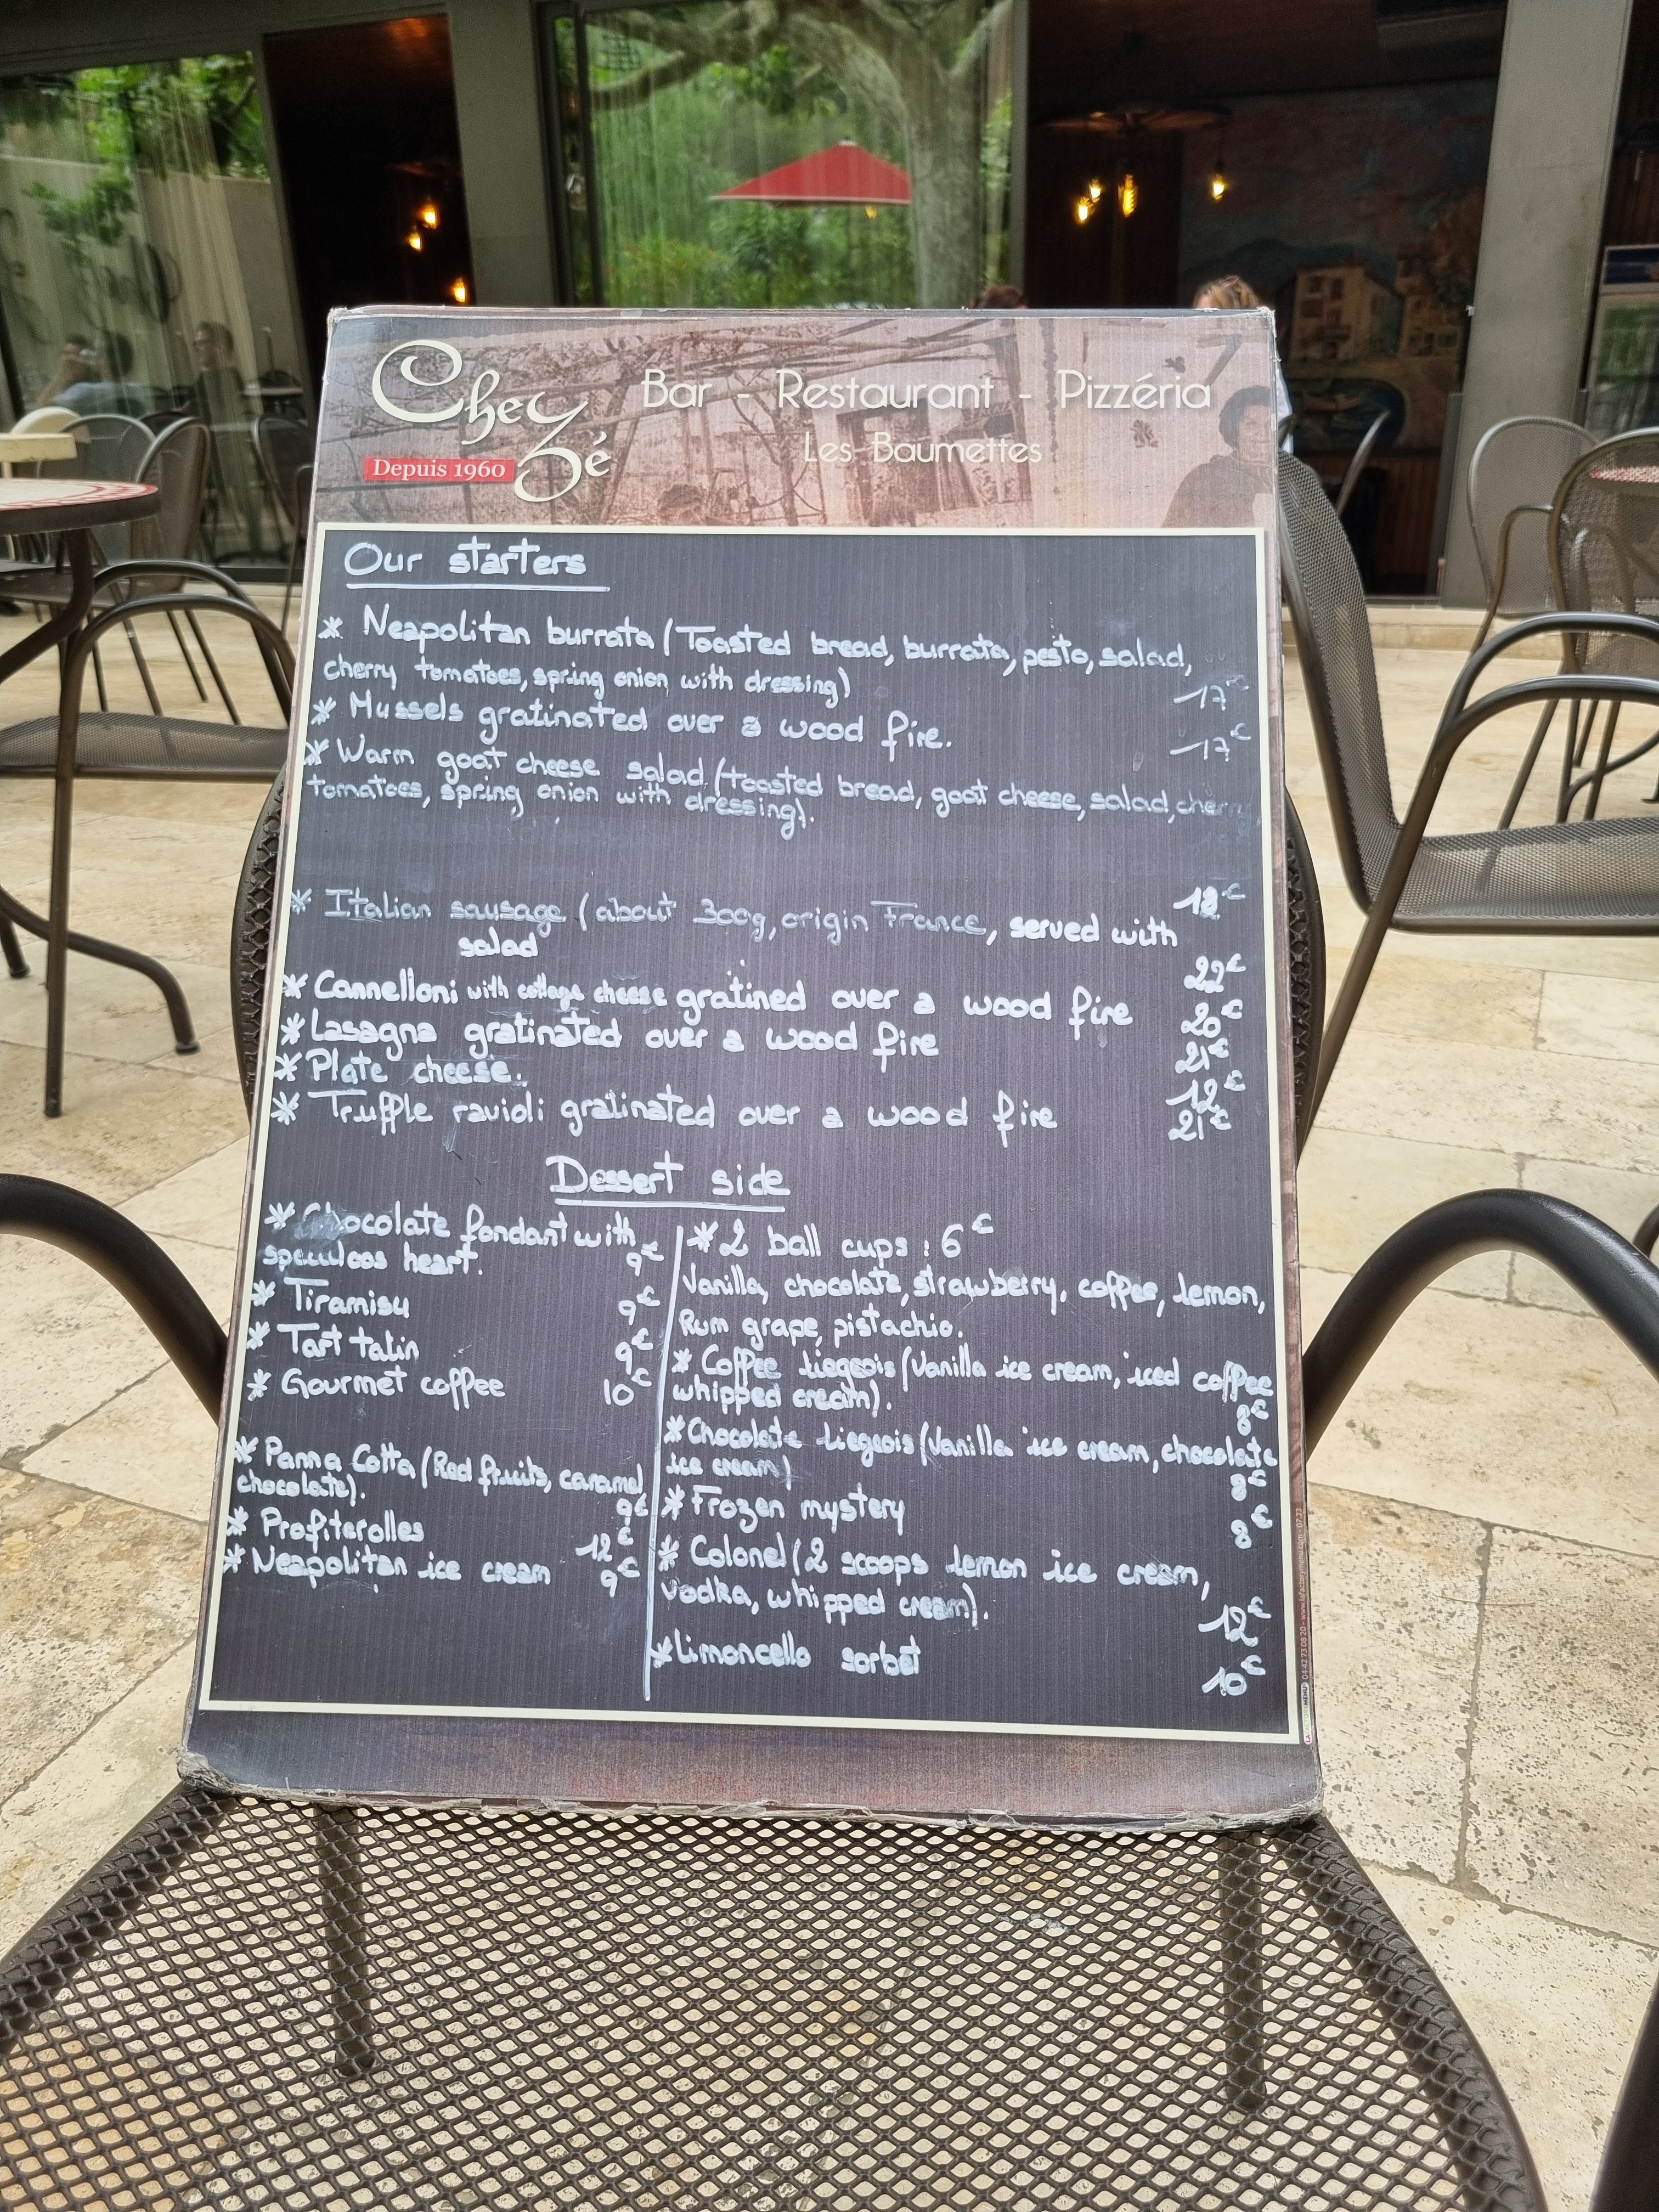 Chez Zé
Bar - Restaurant - Pizzéria
Les Baumettes
Depuis 1960
Our starters
* Neapolitan burrata (Toasted bread, burrata, pesto, salad,
cherry tomatoes, spring onion with dressing) 17€
* Mussels gratinated over a wood fire. 17€
* Warm goat cheese salad (toasted bread, goat cheese, salad, cherry
tomatoes, spring onion with dressing).
18€
* Italian sausage (about 300g, origin France, served with
salad 22€
* Cannelloni with cottage cheese gratined over a wood fire 20€
* Lasagna gratinated over a wood fire 21€
* Plate cheese. 12€
* Truffle ravioli gratinated over a wood fire 21€
Dessert side
* Chocolate fondant with
speculoos heart. 9€
* Tiramisu 9€
* Tart tatin 9€
* Gourmet coffee 10€
* Panna Cotta (Red fruits, caramel
chocolate). 9€
* Profiterolles 12€
* Neapolitan ice cream 9€
* 2 ball cups : 6€
Vanilla, chocolate, strawberry, coffee, lemon,
Rum grape, pistachio.
* Coffee liegeois (Vanilla ice cream, iced coffee
whipped cream). 8€
* Chocolate liegeois (Vanilla ice cream, chocolate
ice cream) 8€
* Frozen mystery 8€
* Colonel (2 scoops lemon ice cream,
vodka, whipped cream). 12€
* Limoncello sorbet 10€